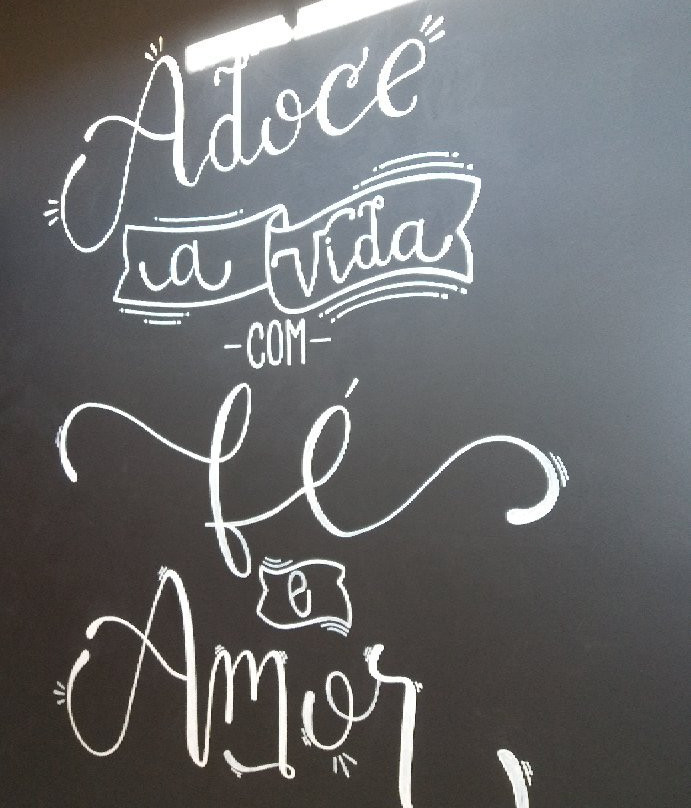 Adoce
a vida
-COM-
fé
e
Amor